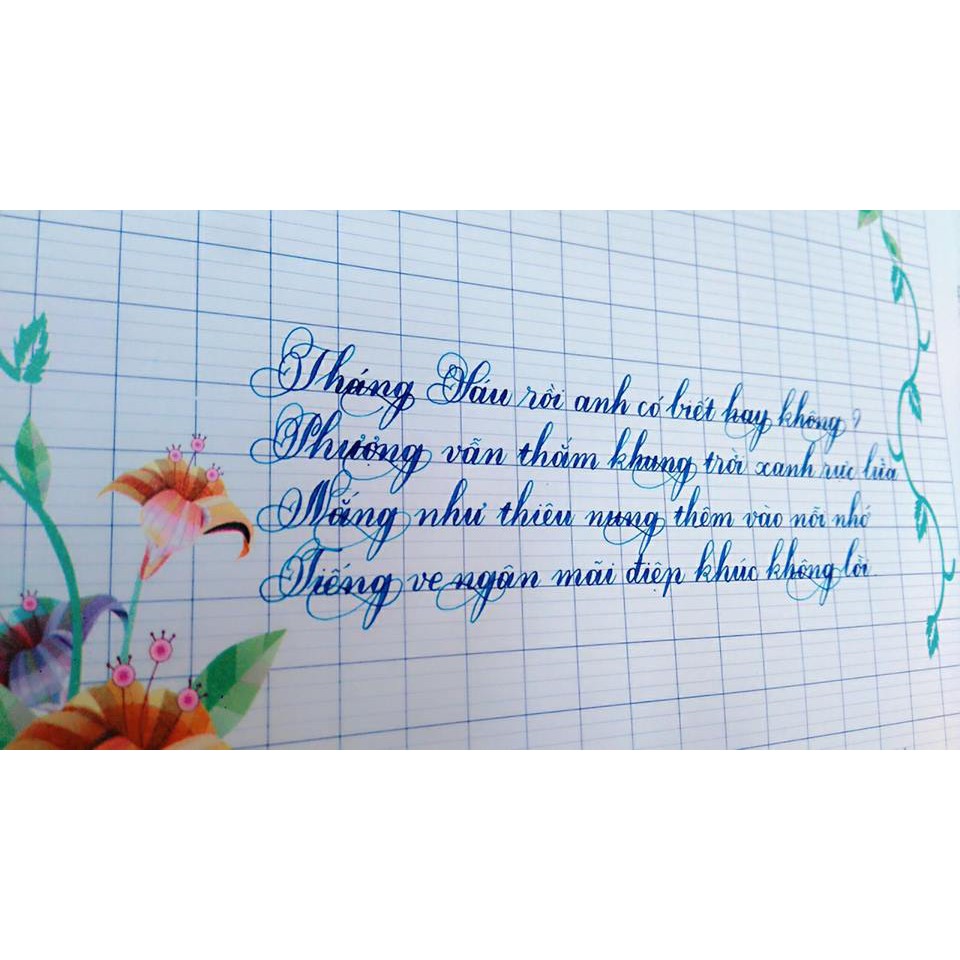 Tháng Sáu rồi anh có biết hay không?
Phượng vẫn thắm khung trời xanh rực lửa
Nắng như thiêu nung thêm vào nỗi nhớ
Tiếng ve ngân mãi điệp khúc không lời